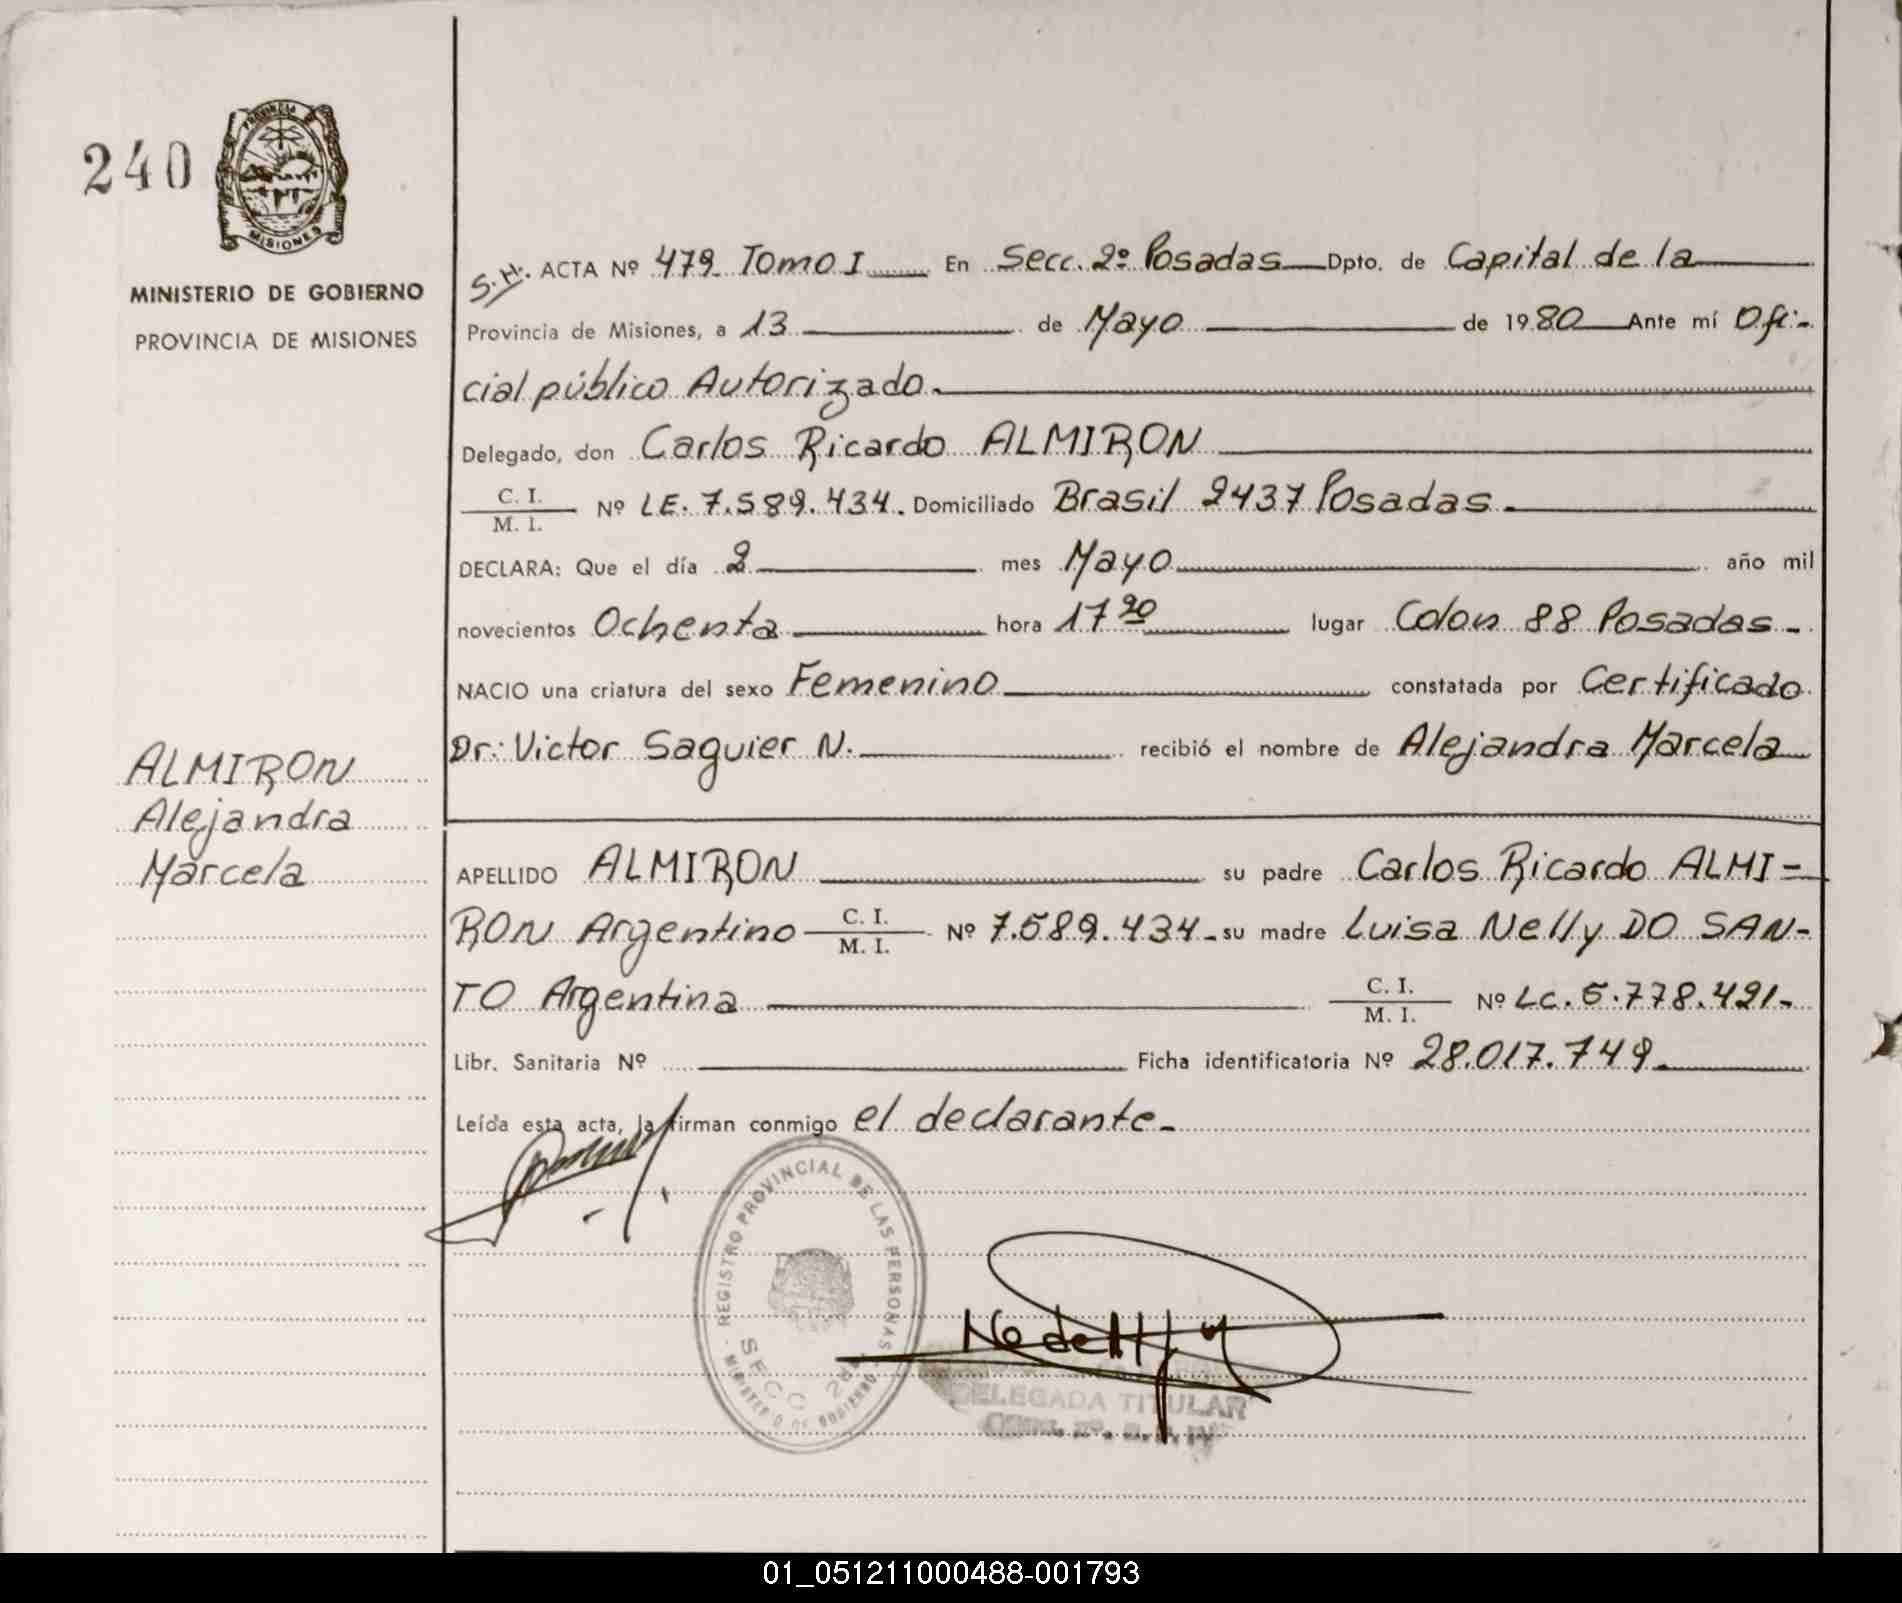 240
PROVINCIA DE
MISIONES
MINISTERIO DE GOBIERNO
PROVINCIA DE MISIONES
ALMIRON
Alejandra
Marcela
S.H. ACTA Nº 479 Tomo I En Secc. 2º Posadas Dpto. de Capital de la
Provincia de Misiones, a 13 de Mayo de 1980 Ante mí Ofi-
cial público Autorizado.
Delegado, don Carlos Ricardo ALMIRON
C. I.
M. I. Nº LE. 7.589.434. Domiciliado Brasil 2437 Posadas.
DECLARA: Que el día 2 mes Mayo año mil
novecientos Ochenta hora 17 20 lugar Colon 88 Posadas -
NACIO una criatura del sexo Femenino constatada por Certificado
Dr: Victor Saguier N. recibió el nombre de Alejandra Marcela
APELLIDO ALMIRON su padre Carlos Ricardo ALMI-
RON Argentino C. I. M. I. Nº 7.589.434 - su madre Luisa Nelly DO SAN-
TO Argentina C. I. M. I. Nº LC. 5.778.421-
Libr. Sanitaria Nº Ficha identificatoria Nº 28.017.749.
Leída esta acta, la firman conmigo el declarante.-
REGISTRO PROVINCIAL DE LAS PERSONAS
MINISTERIO DE GOBIERNO
SECC 2da
DELEGADA TITULAR
01_051211000488-001793